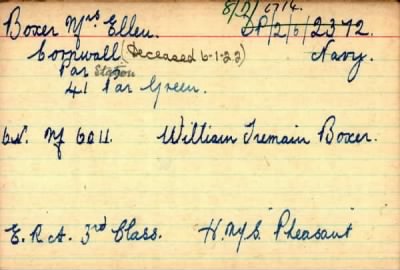 8/2/6714.
Boxer Mrs Ellen. DP/2/6/2372.
Cornwall (Deceased 6-1-22) Navy.
Par Station
41 Par Green.
W. M 6011. William Tremain Boxer.
E. R A. 3rd Class. H. M S. "Pheasant"